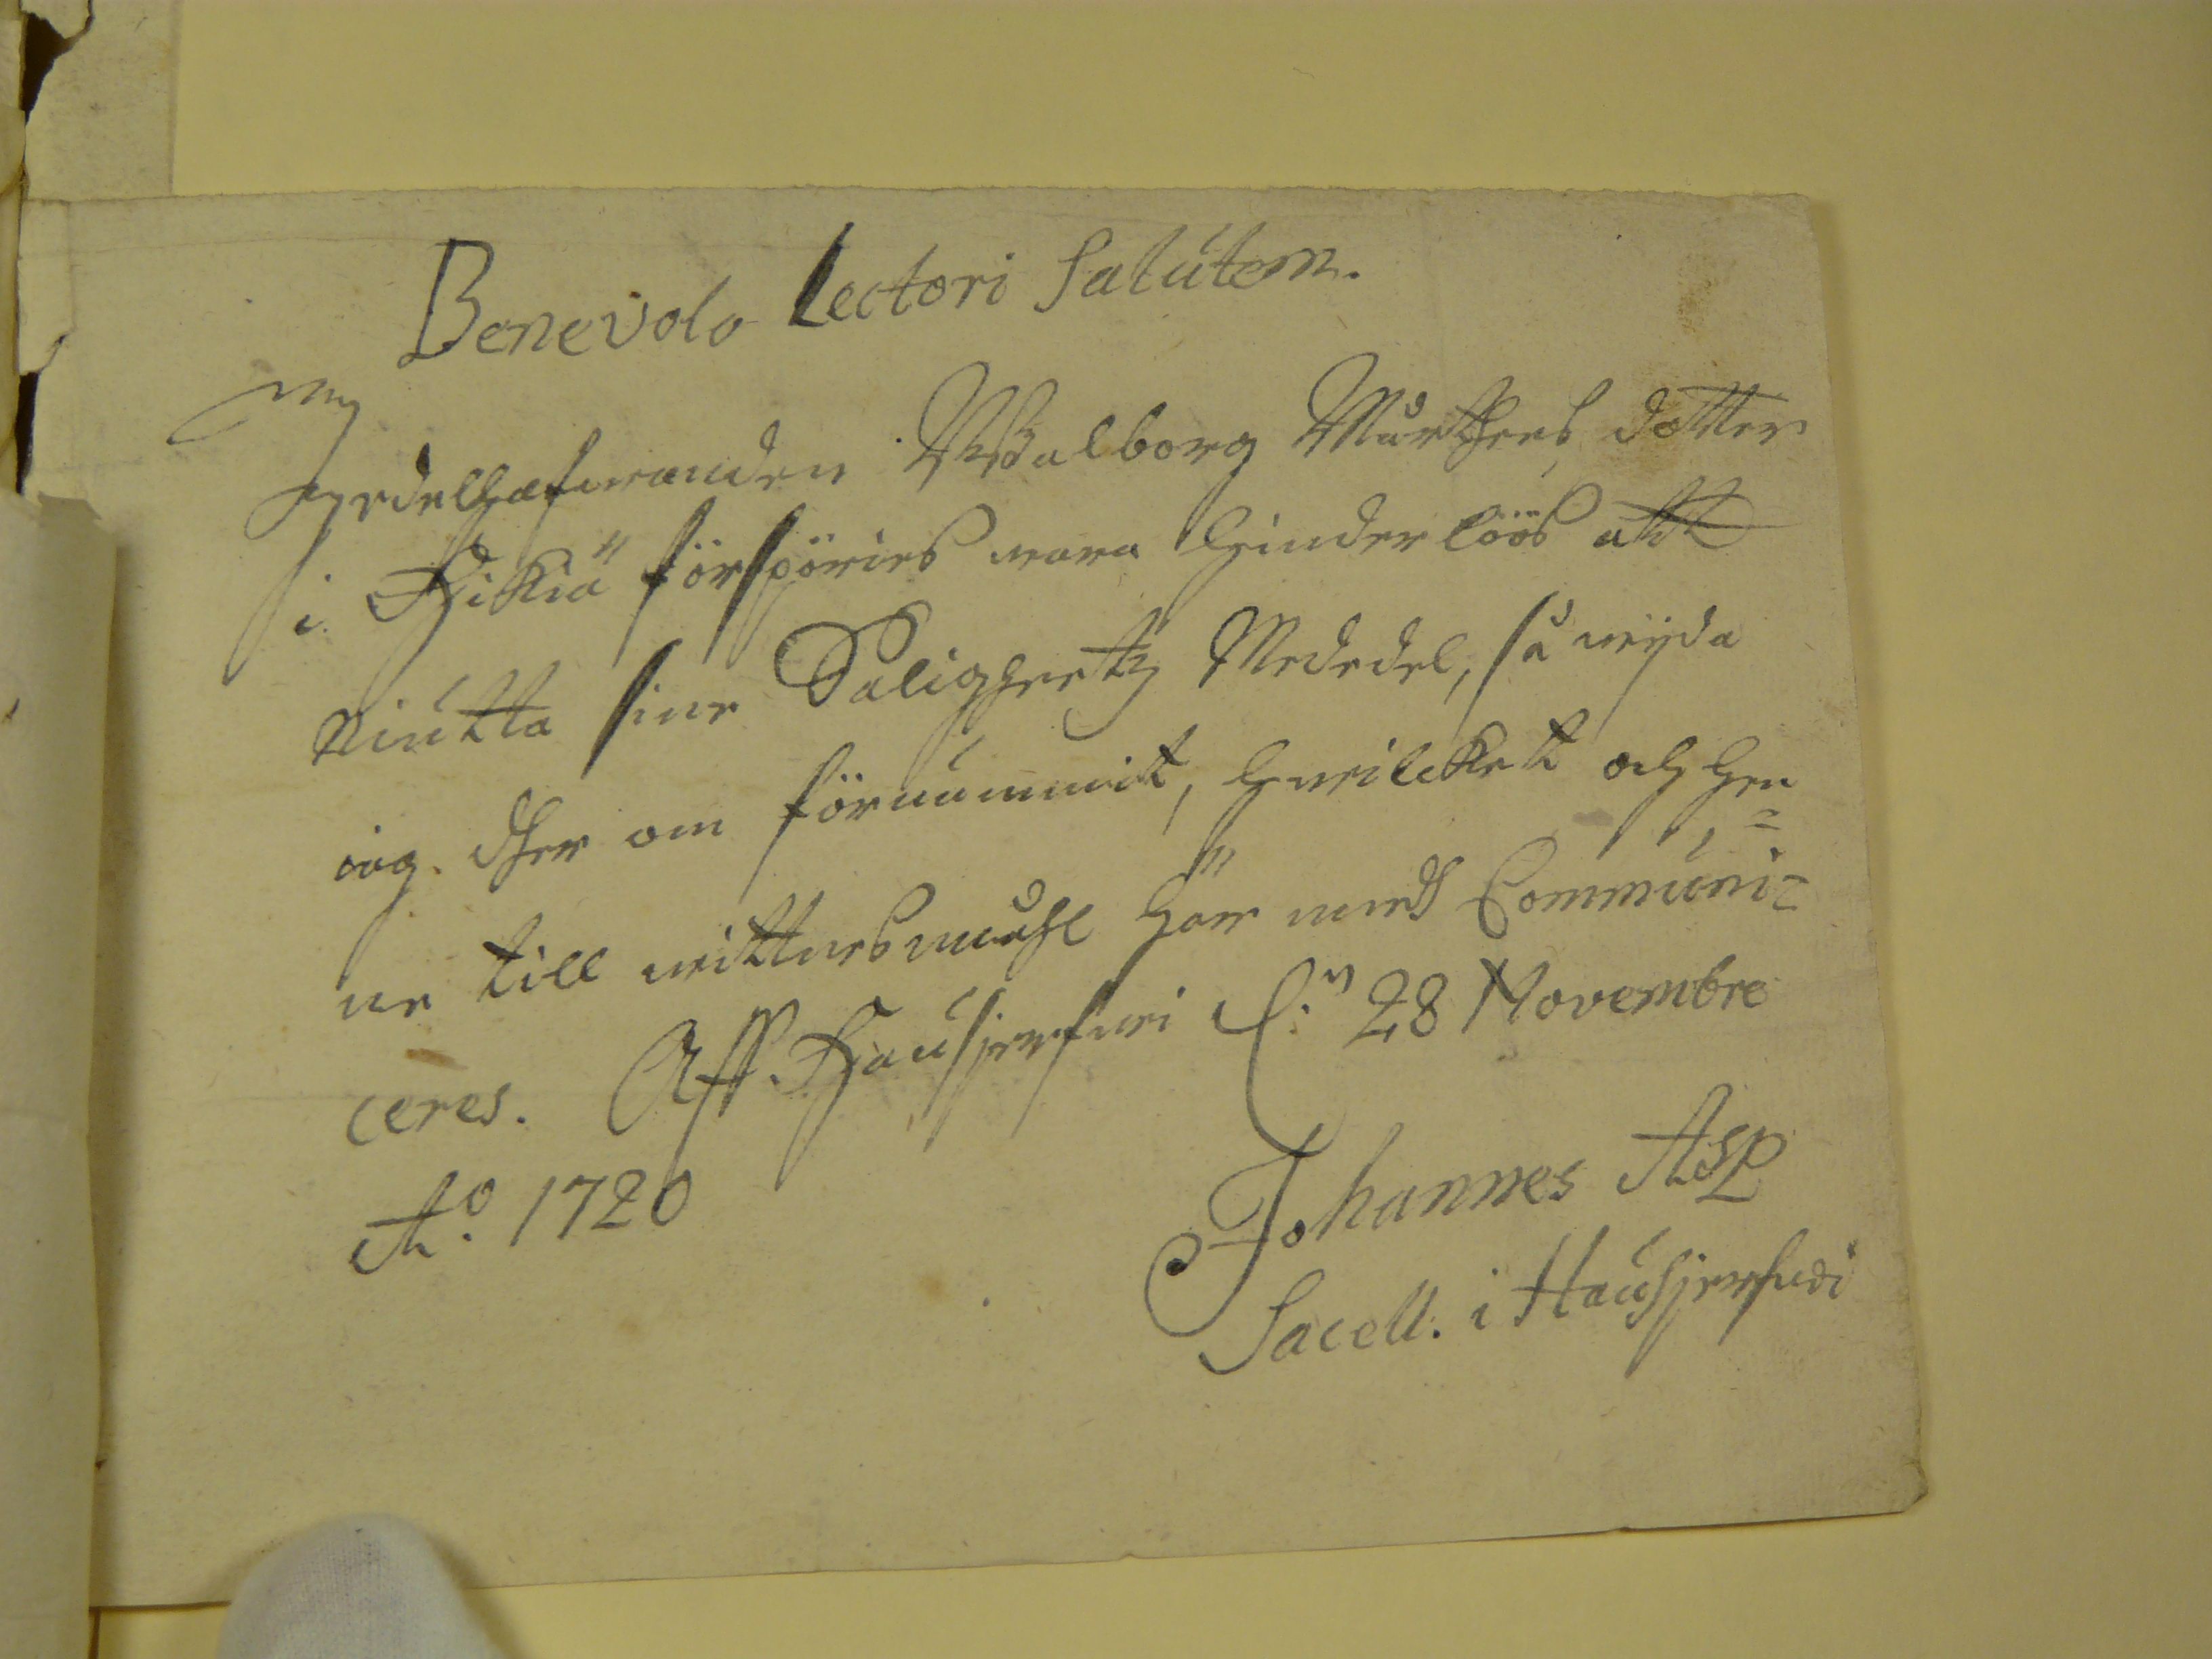 Benevolo Lectori Salutem.
Walborg Mårthens dotter
i Hikiä förspöries wara hinderlöös att
niutta sine Saligheetz Mededel, så wijda
iag. Ther om förnummit, hwilcket och hen=
ne till wittnesmåhl här medh Communi=
ceres. Aff. Hausjerfwi d:n 28 Novembre
Ao. 1720
Johannes Asp
Sacell. i Hausjerfwi